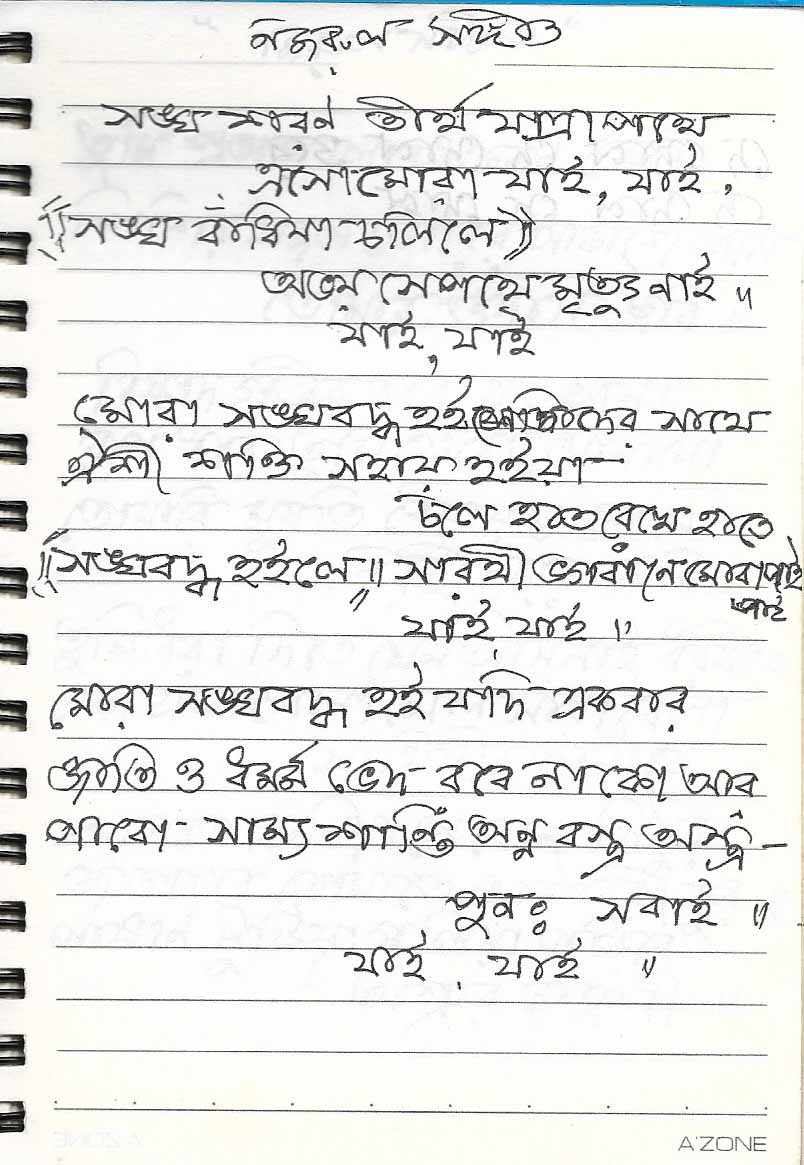 নজরুল সঙ্গীত
সঙ্ঘ শরণ তীর্থ যাত্রা পথে
এসো মোরা যাই, যাই,
সঙ্ঘ বাঁধিয়া চলিলে
অভয় সেপথে মৃত্যু নাই ॥
যাই, যাই
মোরা সঙ্ঘবদ্ধ হই যদি সাথে
ঐশী শক্তি সহায় হইয়া—
চলে হাত রেখে হাতে
সঙ্ঘবদ্ধ হইলে ॥ সারথী ভগবানে মোরা পাই
পাই
যাই, যাই ॥
মোরা সঙ্ঘবদ্ধ হই যদি একবার
জাতি ও ধর্ম ভেদ রবে নাকো আর
পাবো সাম্য শান্তি অন্ন বস্ত্র অস্ত্র –
পুনঃ সবাই ॥
যাই, যাই ॥
A'ZONE